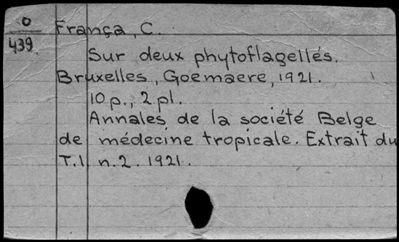 O
439
França, C.
Sur deux phytoflagellés.
Bruxelles, Goemaere, 1921.
10 p., 2 pl.
Annales de la société Belge
de médecine tropicale. Extrait du
T.1 n.2. 1921.